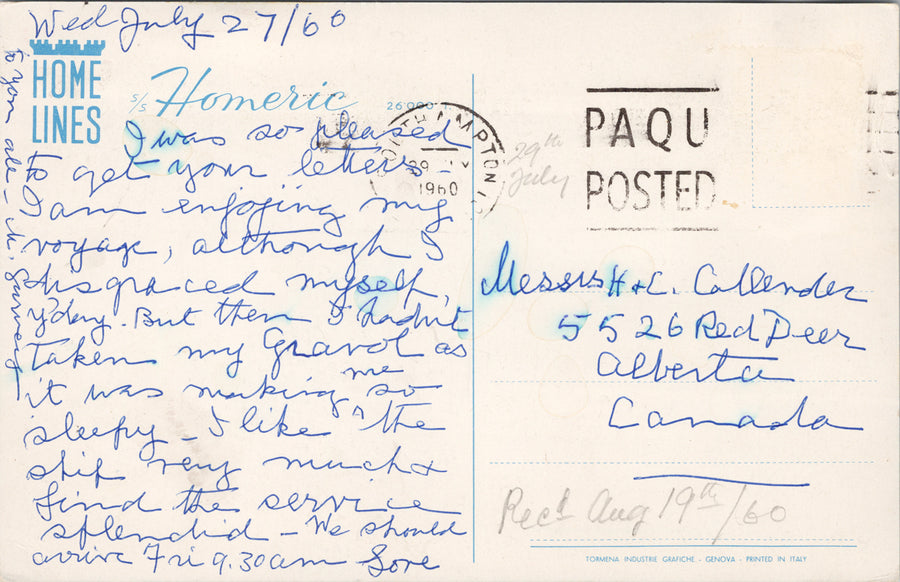 Wed July 27/60
HOME
LINES
s/s Homeric
26000 T.
I was so pleased
to get your letters -
I am enjoying my
voyage, although I
disgraced myself,
y'day. But then I hadn't
taken my Gravol as
it was making me so
sleepy - I like the
ship very much &
find the service
splendid - We should
arrive Fri 9.30am Love
to you all - M.
SOUTHAMPTON
29
1960
29th
July
PAQU
POSTED
Messrs H & L. Callender
5526 Red Deer
Alberta
Canada
Rec'd Aug 19th/60
TORMENA INDUSTRIE GRAFICHE - GENOVA - PRINTED IN ITALY